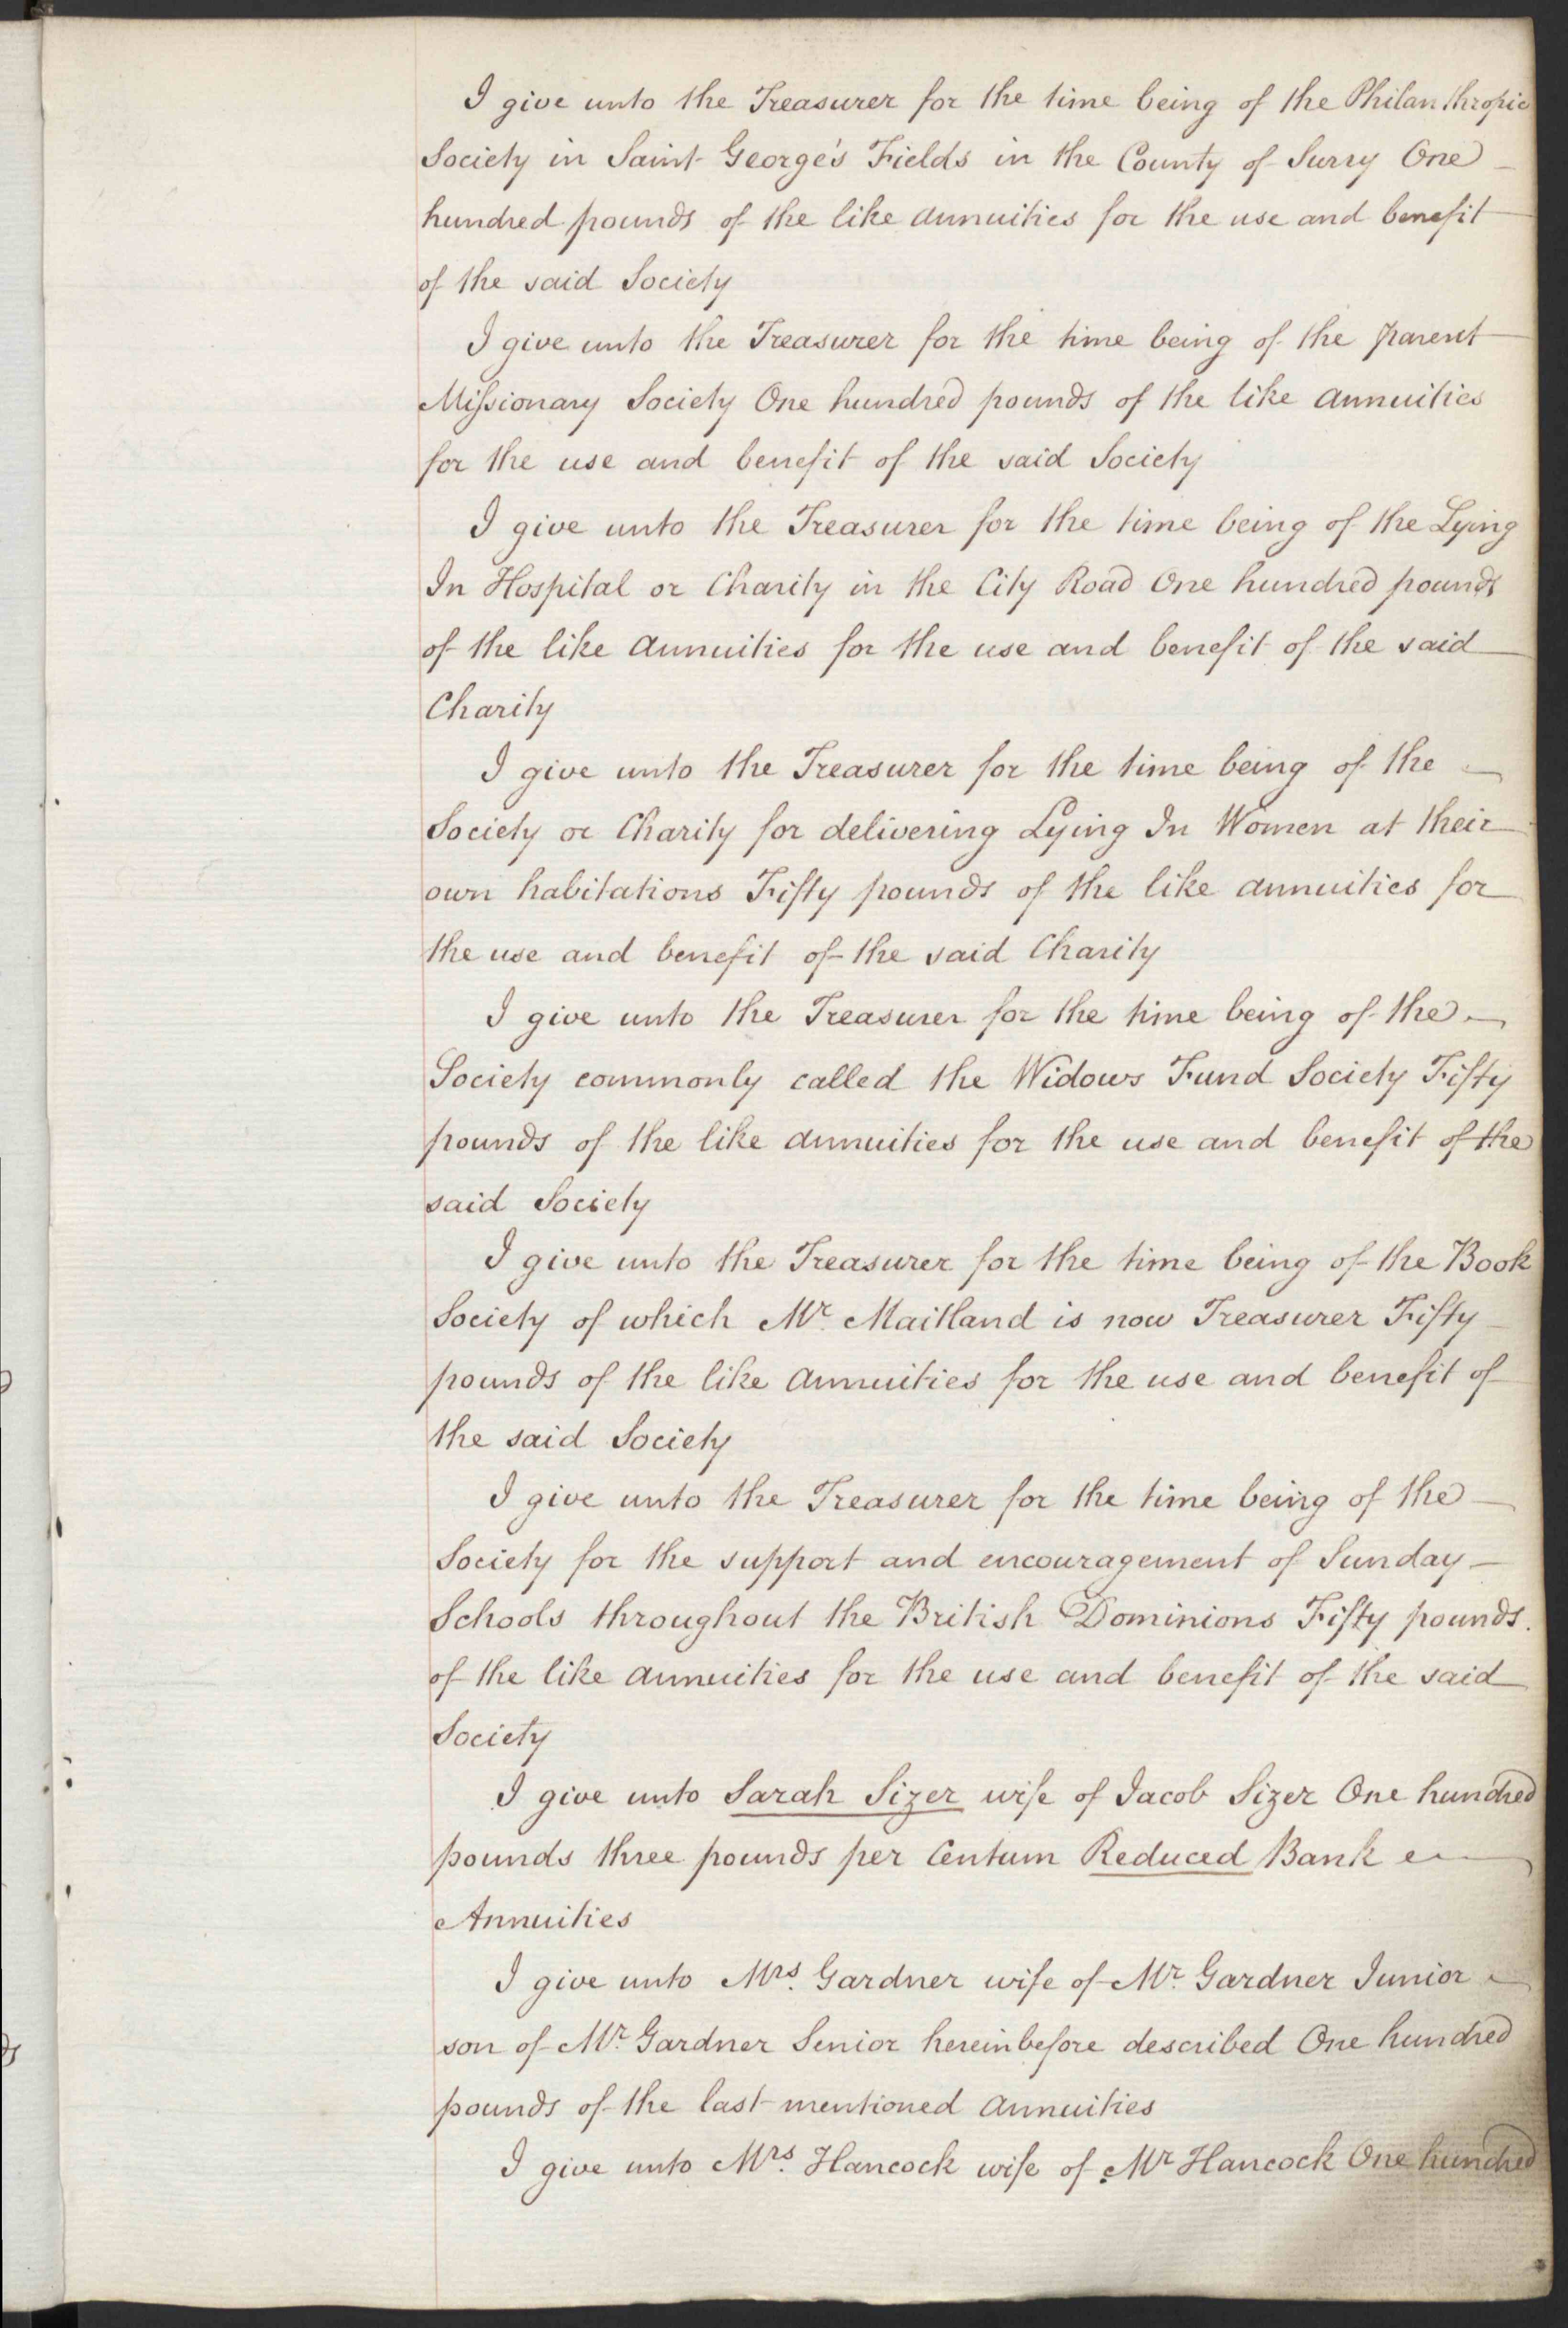 I give unto the Treasurer for the time being of the Philanthropic
Society in Saint George's Fields in the County of Surry One
hundred pounds of the like annuities for the use and benefit
of the said Society
I give unto the Treasurer for the time being of the parent
Missionary Society One hundred pounds of the like annuities
for the use and benefit of the said Society
I give unto the Treasurer for the time being of the Lying
In Hospital or Charity in the City Road One hundred pounds
of the like annuities for the use and benefit of the said
Charity
I give unto the Treasurer for the time being of the
Society or Charity for delivering Lying In Women at their
own habitations Fifty pounds of the like annuities for
the use and benefit of the said Charity
I give unto the Treasurer for the time being of the
Society commonly called the Widows Fund Society Fifty
pounds of the like annuities for the use and benefit of the
said Society
I give unto the Treasurer for the time being of the Book
Society of which Mr. Maitland is now Treasurer Fifty
pounds of the like annuities for the use and benefit of
the said Society
I give unto the Treasurer for the time being of the
Society for the support and encouragement of Sunday
Schools throughout the British Dominions Fifty pounds.
of the like annuities for the use and benefit of the said
Society
I give unto Sarah Sizer wife of Jacob Sizer One hundred
pounds three pounds per Centum Reduced Bank
Annuities
I give unto Mrs. Gardner wife of Mr. Gardner Junior
son of Mr. Gardner Senior hereinbefore described One hundred
pounds of the last mentioned annuities
I give unto Mrs. Hancock wife of Mr Hancock One hundred